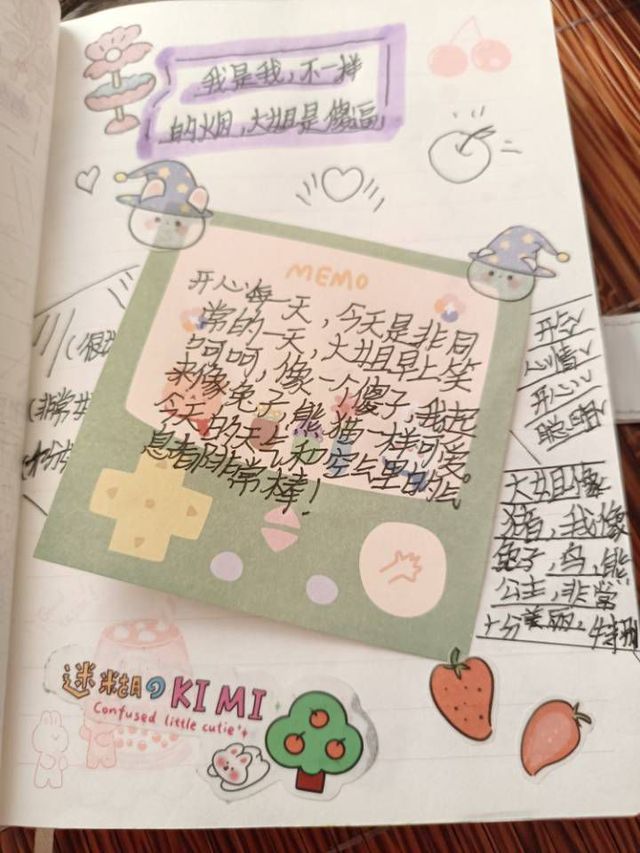 我是我，不一样
的烟，大姐是傻逼
MEMO
开心每一天，今天是非同
常的一天，大姐早上笑
呵呵，像一个傻子，我起
来像兔子，熊猫一样可爱。
今天的天气和空气里的气
息都非常棒！
(很
(非常
(十分
开
心情
开心
聪明
大姐像
猪，我像
兔子，鸟，熊，
公主，非常
十分美丽，特别
迷糊の KIMI
Confused little cutie